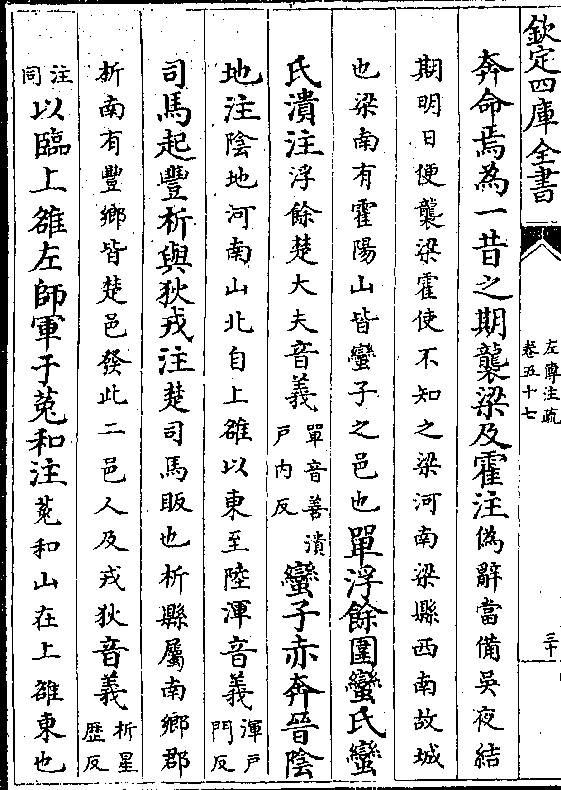 欽定四庫全書
左傳注疏
卷五十七
三十
奔命焉為一昔之期襲梁及霍注偽辭當備吳夜結
期明日便襲梁霍使不知之梁河南梁縣西南故城
也梁南有霍陽山皆蠻子之邑也單浮餘圍蠻氏蠻
氏潰注浮餘楚大夫音義單音善潰戶内反蠻子赤奔晉陰
地注陰地河南山北自上雒以東至陸渾音義渾戶門反
司馬起豐析與狄戎注楚司馬眅也析縣屬南鄉郡
析南有豐鄉皆楚邑發此二邑人及戎狄音義析星歴反
注同以臨上雒左師軍于菟和注菟和山在上雒東也